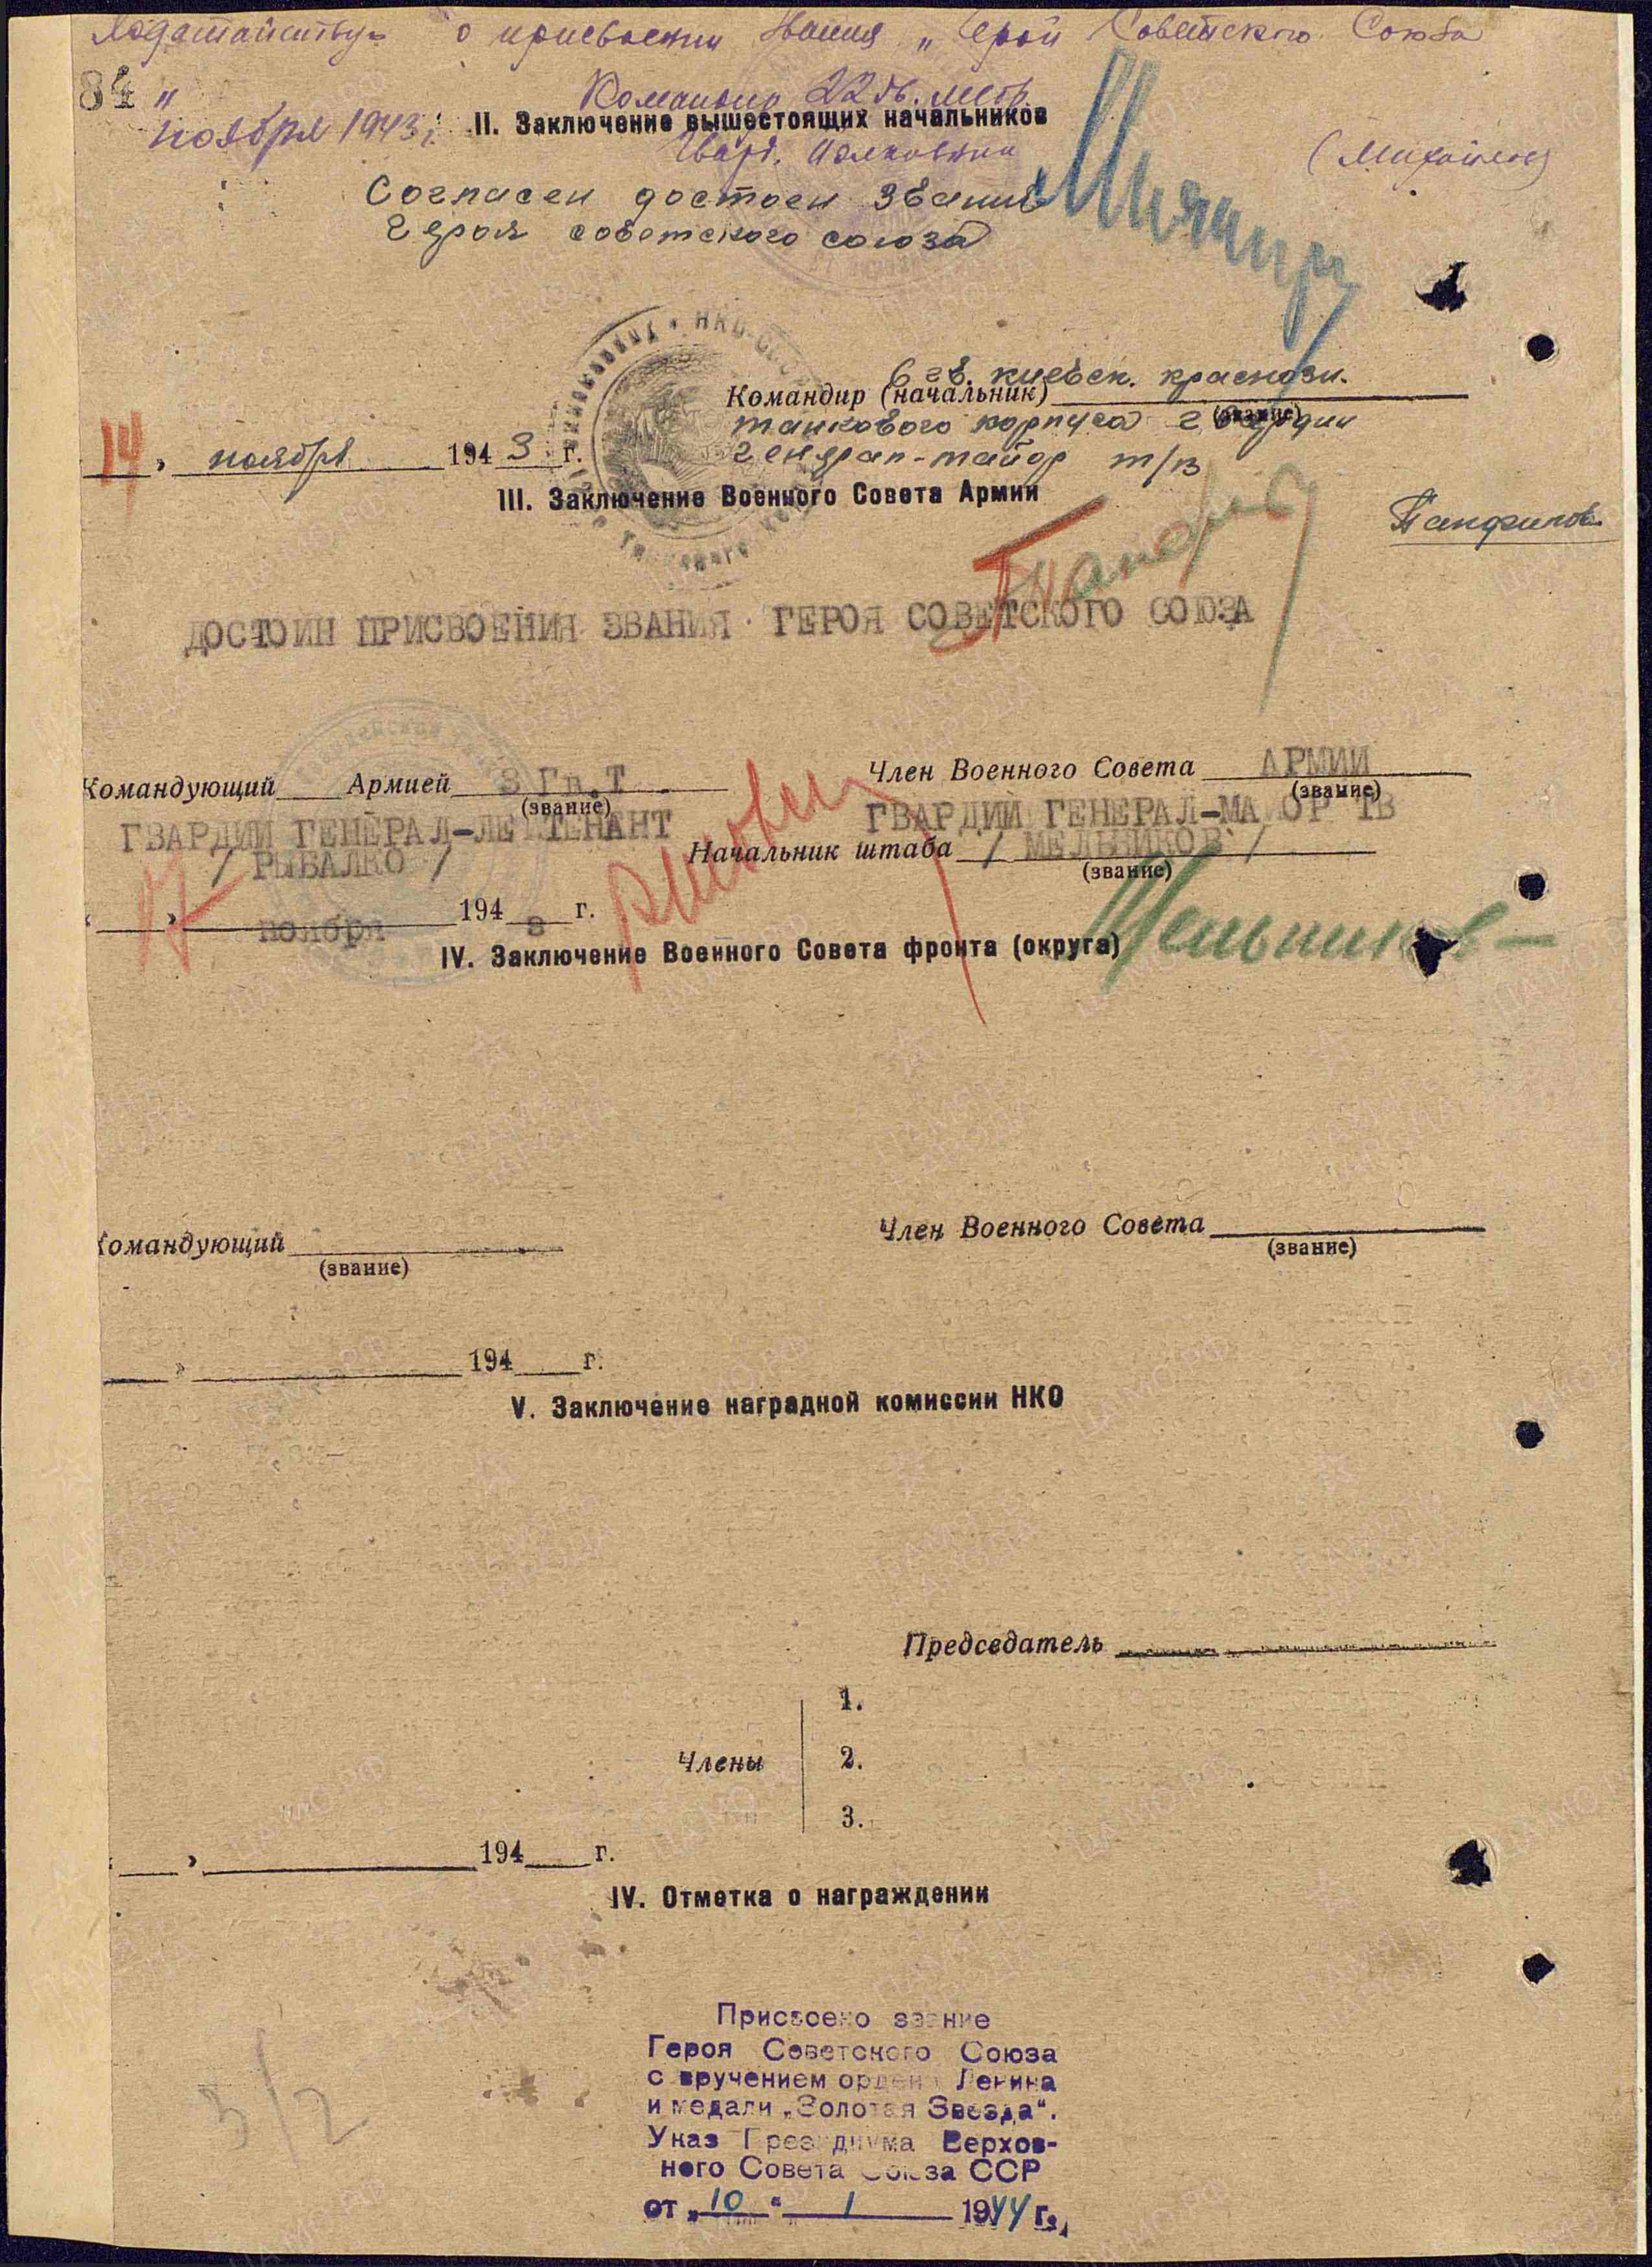 Ходатайствую о присвоении звания „Герой Советского Союза
84 "
Командир 22 гв. мсбр.
ноября 1943 г.
II. Заключение вышестоящих начальников
Гвард. Полковник
Согласен достоен звания
Героя советского союза
6 гв. киевск. краснозн.
Командир (начальник)
(звание)
танкового корпуса гвардии
14 » ноября 1943 г.
генерал-майор т/в
III. Заключение Военного Совета Армии
Панфилов
ДОСТОИН ПРИСВОЕНИЯ ЗВАНИЯ ГЕРОЯ СОВЕТСКОГО СОЮЗА
Командующий Армией 3 Гв.Т
(звание)
Член Военного Совета АРМИИ
(звание)
ГВАРДИИ ГЕНЕРАЛ-ЛЕЙТЕНАНТ
ГВАРДИИ ГЕНЕРАЛ-МАЙОР ТВ
/ РЫБАЛКО /
Начальник штаба / МЕЛЬНИКОВ /
(звание)
17 » ноября 1943 г.
Мельников
IV. Заключение Военного Совета фронта (округа)
Командующий
(звание)
Член Военного Совета
(звание)
» 194 г.
V. Заключение наградной комиссии НКО
Председатель
1.
Члены 2.
3.
» 194 г.
IV. Отметка о награждении
Присвоено звание
Героя Советского Союза
с вручением ордена Ленина
и медали „Золотая Звезда“.
Указ Президиума Верхов-
ного Совета Союза ССР
от „10“ 1 1944 г.
3/2